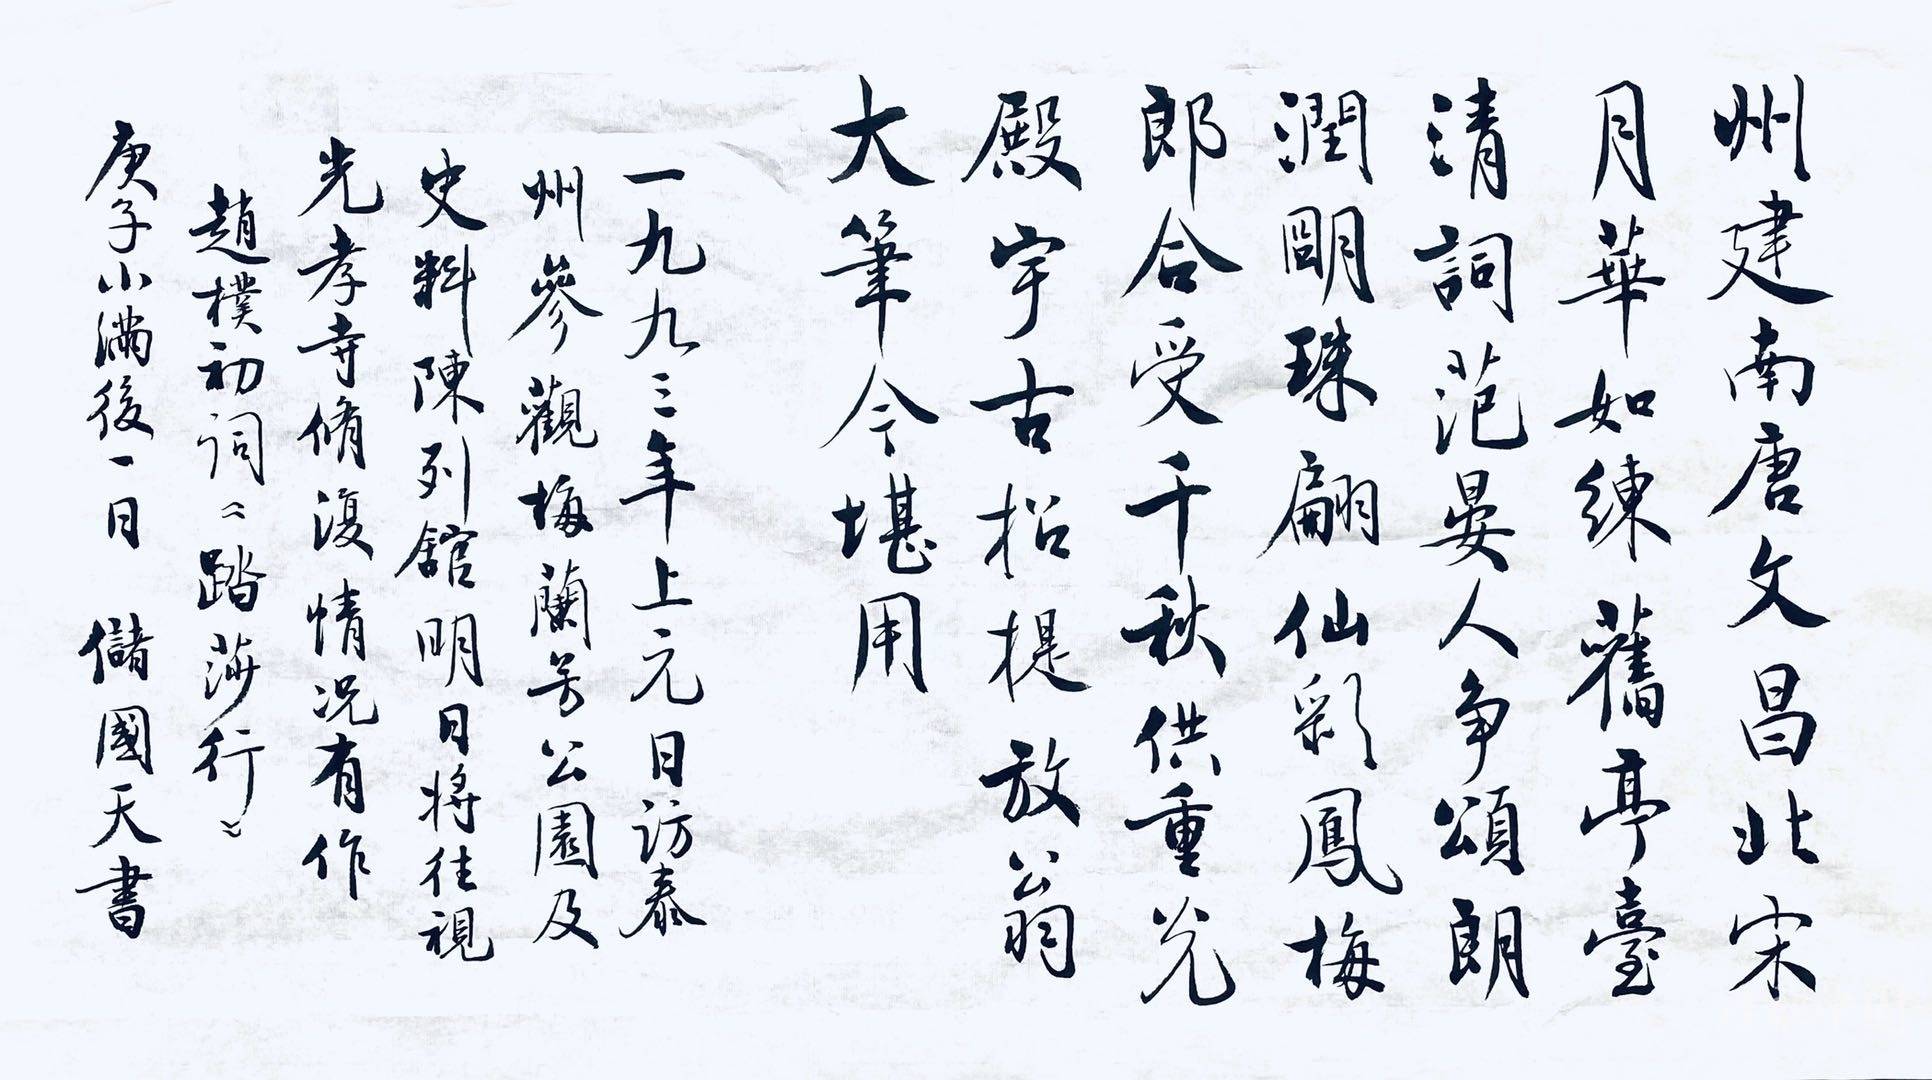 州建南唐文昌北宋
月華如練舊亭臺
清詞范晏人争頌朗
潤明珠翩仙彩鳳梅
郎合受千秋供重光
殿宇古招提放翁
大筆今堪用
一九九三年上元日訪泰
州參觀梅蘭芳公園及
史料陳列館明日將往視
光孝寺脩復情況有作
趙樸初詞《踏莎行》
庚子小滿後一日 儲國天書